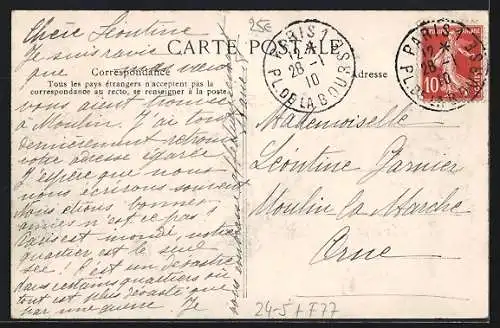 Chère Léontine
Je suis ravie
que des vœux
vous aient trouvée
à Moulin. J'ai tout
dernièrement retrouvé
votre adresse égarée
J'espère que nous
nous écrirons souvent
Nous étions bonnes
amies n'est ce pas!
Paris est inondé, notre
quartier est le seul
sec! C'est un désastre
dans certains quartiers où
tout est plus dévasté que
par une guerre. Je
25€
CARTE POSTALE
Correspondance
Tous les pays étrangers n'acceptent pas la
correspondance au recto, se renseigner à la poste
Adresse
PARIS 1
12
28-1
10
PL. DE LA BOURSE
PARIS 1
12
28-1
10
PL. DE LA BOURSE
10
Mademoiselle
Léontine Garnier
Moulin la Marche
Orne
24-5 + F77